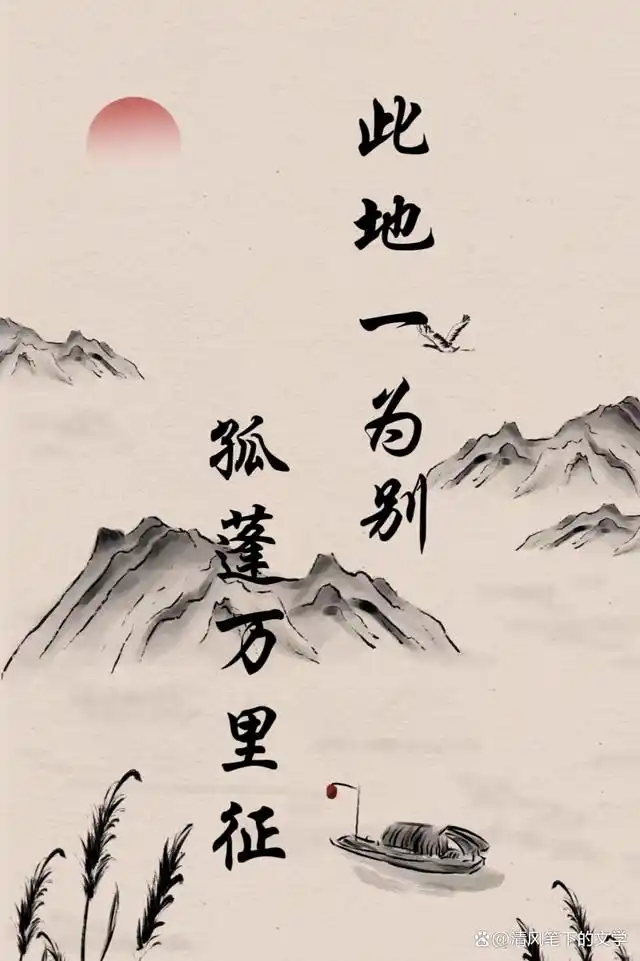 此地一为别
孤蓬万里征
@清风笔下的文学